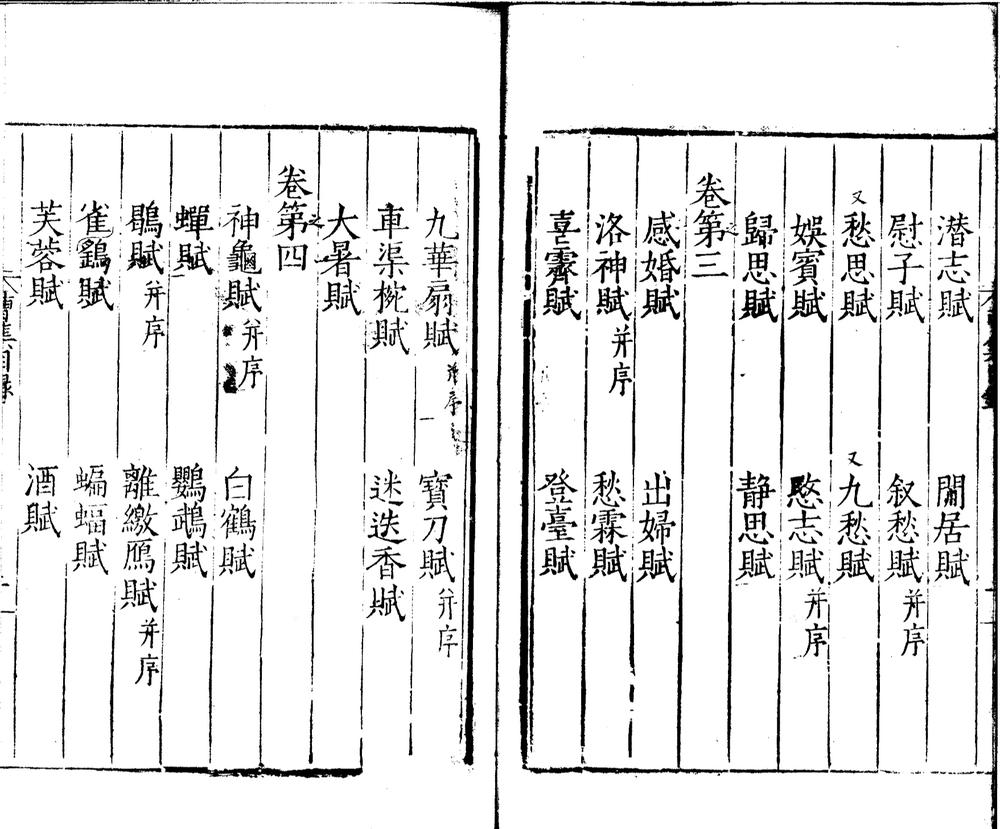 潛志賦 閒居賦
慰子賦 叙愁賦并序
又愁思賦 又九愁賦
娛賓賦 愍志賦并序
歸思賦 靜思賦
卷第三
感婚賦 出婦賦
洛神賦并序 愁霖賦
喜霽賦 登臺賦
九華扇賦并序 寶刀賦并序
車渠椀賦 迷迭香賦
大暑賦
卷第四
神龜賦并序 白鶴賦
蟬賦 鸚鵡賦
鶡賦并序 離繳鴈賦并序
雀鷂賦 蝙蝠賦
芙蓉賦 酒賦
曹集目録